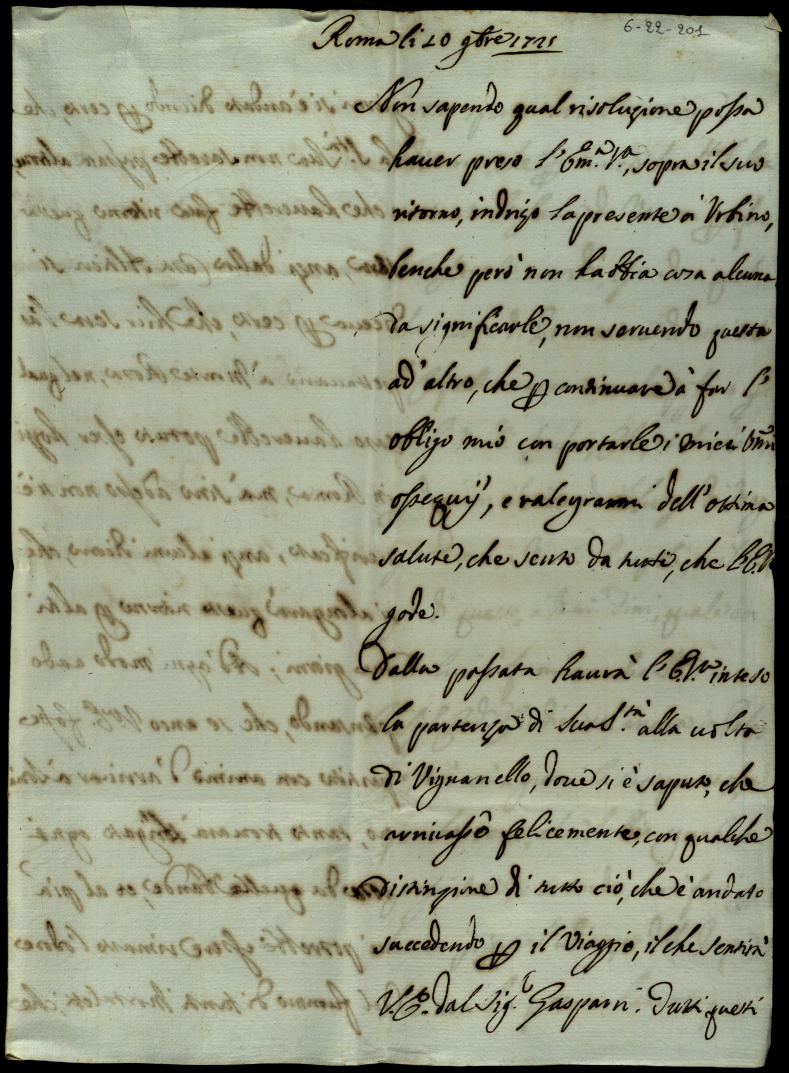 6-22-201
Roma li 10 9bre 1725
Non sapendo qual risoluzione possa
hauer preso l'Em.ª V.ª, sopra il suo
ritorno, indrizo la presente à Urbino,
benche però non habbia cosa alcuna
da significarle, non seruendo questa
ad' altro, che p continuare à far l'
obligo mio con portarle i miei Um.mi
ossequij, e ralegrarmi dell' ottima
salute, che sento da tutti, che l'E.V.
gode.
Dalla passata haurà l'E.V.ra inteso
la partenza di Sua S.tà alla uolta
di Vignanello, doue si è saputo, che
arriuasse felicemente, con qualche
distinzione di tutto ciò, che è andato
succedendo p il Viaggio, il che sentirà
V.E. dal Sig.r Gasparri. Tutti questi